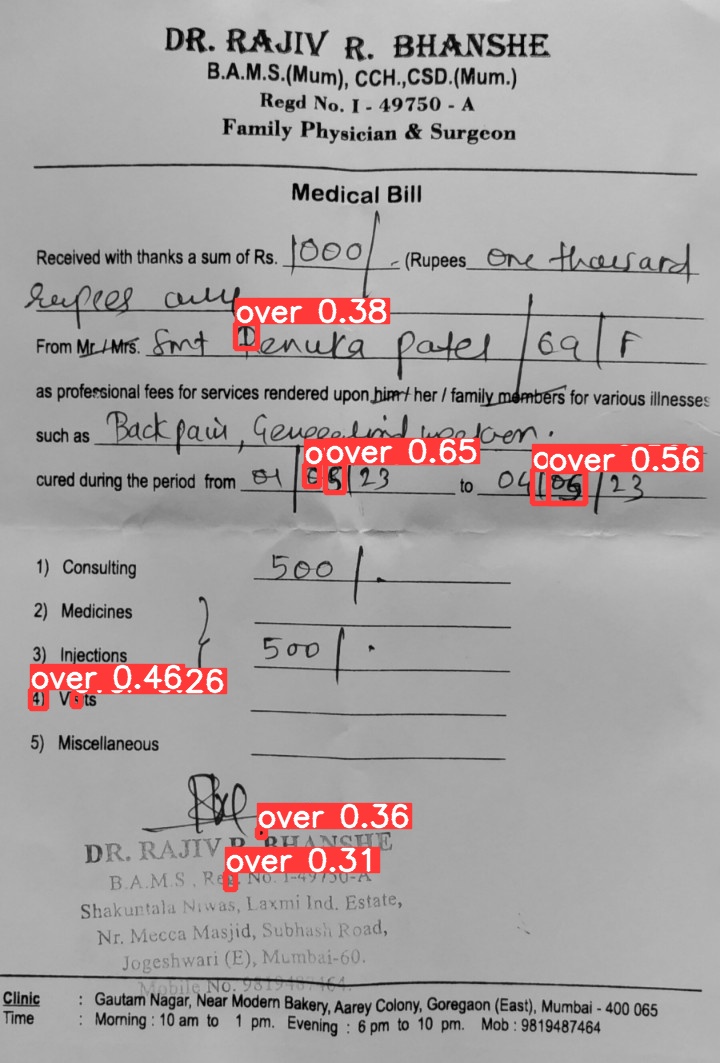 DR. RAJIV R. BHANSHE
B.A.M.S.(Mum), CCH.,CSD.(Mum.)
Regd No. I - 49750 - A
Family Physician & Surgeon
Medical Bill
Received with thanks a sum of Rs. 1000/- (Rupees One thousand
rupees only
over 0.38
From Mr./Mrs. Smt Renuka Patel /69/F
as professional fees for services rendered upon him / her / family members for various illnesses
such as Back pain, General
over 0.65 over 0.56
cured during the period from 01/05/23 to 04/06/23
1) Consulting 500/.
2) Medicines
3) Injections 500/.
over 0.46 26
4) Visits
5) Miscellaneous
over 0.36
DR. RAJIV R. BHANSHE
over 0.31
B.A.M.S , Reg. No. I-49750-A
Shakuntala Niwas, Laxmi Ind. Estate,
Nr. Mecca Masjid, Subhash Road,
Jogeshwari (E), Mumbai-60.
Mobile No. 9819487464.
Clinic : Gautam Nagar, Near Modern Bakery, Aarey Colony, Goregaon (East), Mumbai - 400 065
Time : Morning : 10 am to 1 pm. Evening : 6 pm to 10 pm. Mob : 9819487464